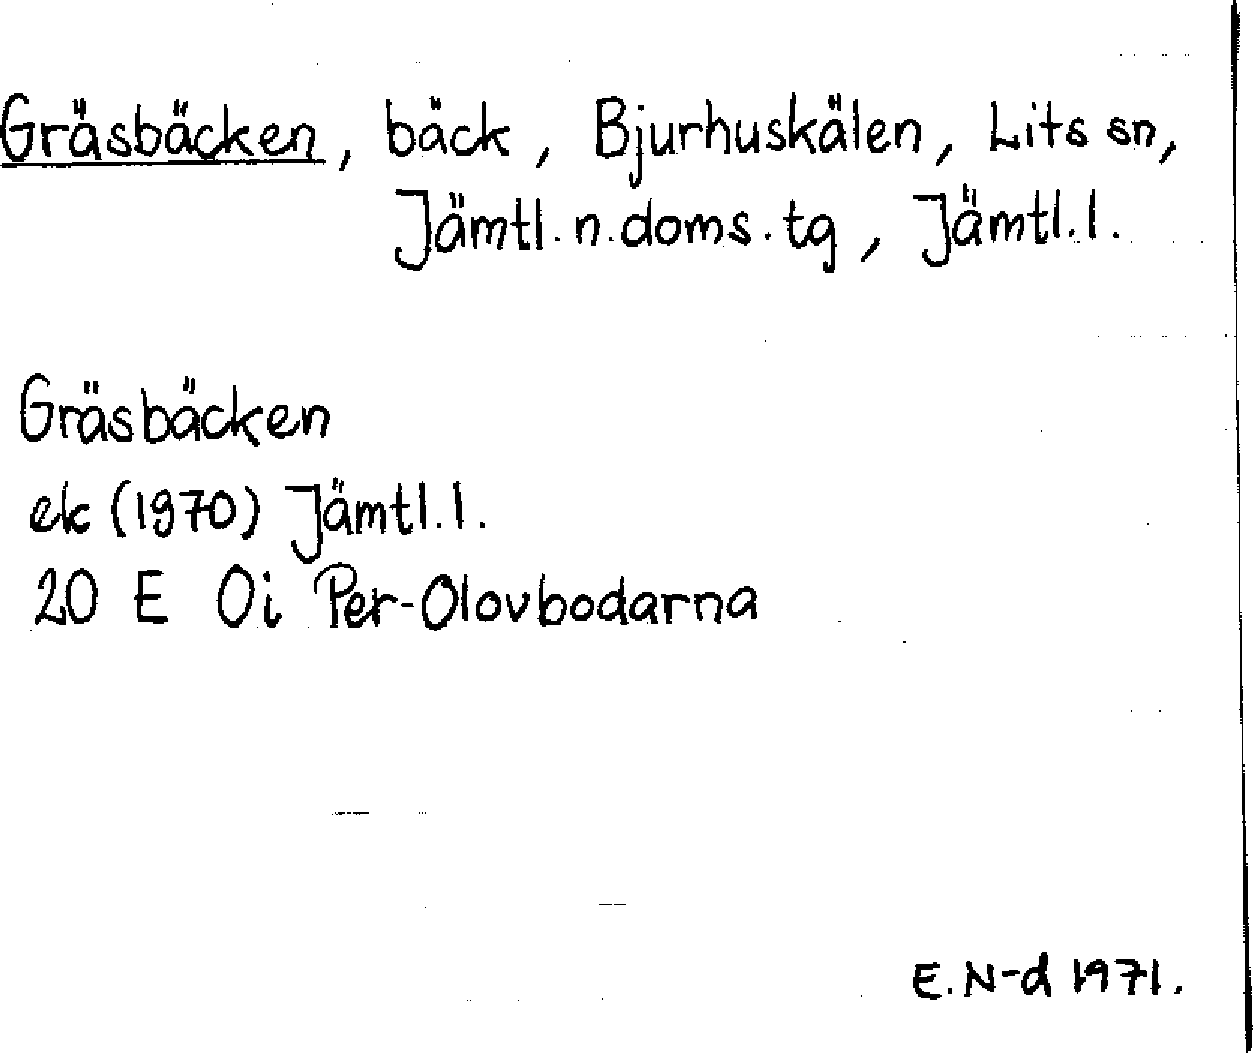 Gräsbäcken, bäck, Bjurhuskälen, Lits sn,
Jämtl. n. doms. tg, Jämtl. l.
Gräsbäcken
ek (1970) Jämtl. l.
20 E 0i Per-Olovbodarna
E. N-d 1971.